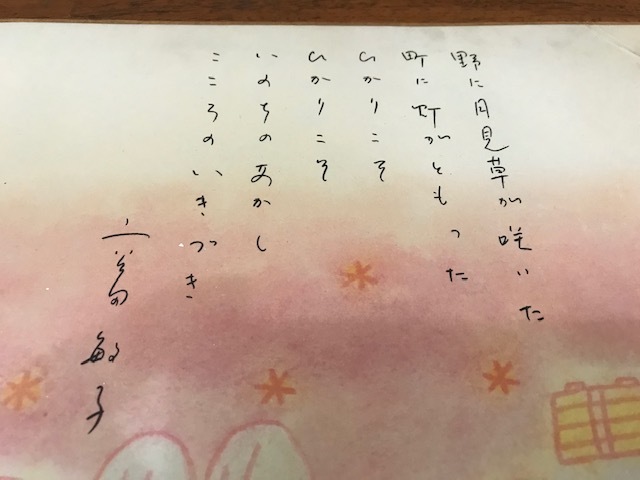 野に月見草が咲いた
町に灯がともった
ひかりこそ
ひかりこそ
いのちのあかし
こころのいきづき
立葛敏子